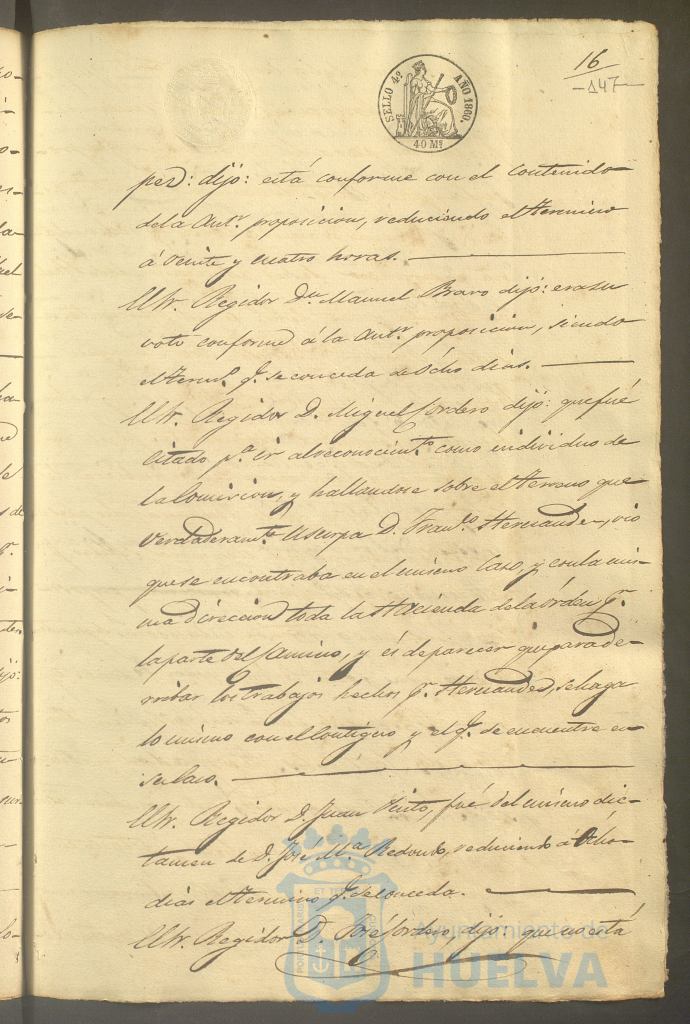 16
-147-
SELLO 4º AÑO 1860.
40 Mˢ
pez: dijo: está conforme con el contenido
de la Antʳ. proposicion, reduciendo el termino
á veinte y cuatro horas.
El Sr. Regidor Dn. Manuel Bravo dijo: era su
voto conforme á la Antʳ. proposicion, siendo
el termº. q. se conceda de Ócho dias.
El Sr. Regidor D. Miguel Cordero dijo: que fué
citado pª. ir al reconocimᵗᵒ. como individuo de
la Comision, y hallandose sobre el terreno que
verdaderamᵗᵉ. usurpa D. Franᶜᵒ. Hernandez, vió
que se encontraba en el mismo Caso, y en la mis-
ma direccion toda la Hacienda de la órden pʳ.
la parte del Camino, y és de parecer que para de-
rribar los trabajos hechos pʳ. Hernandez, se haga
lo mismo con el Contiguo y el q. se encuentre en
su Caso.
El Sr. Regidor D. Juan Pinto, fué del mismo dic-
tamen de D. José Mª. Redondo, reduciendo á Ocho
dias el termino q. se conceda.
El Sr. Regidor D. José Cordero, dijo: que no está
Ayuntamiento de
HUELVA